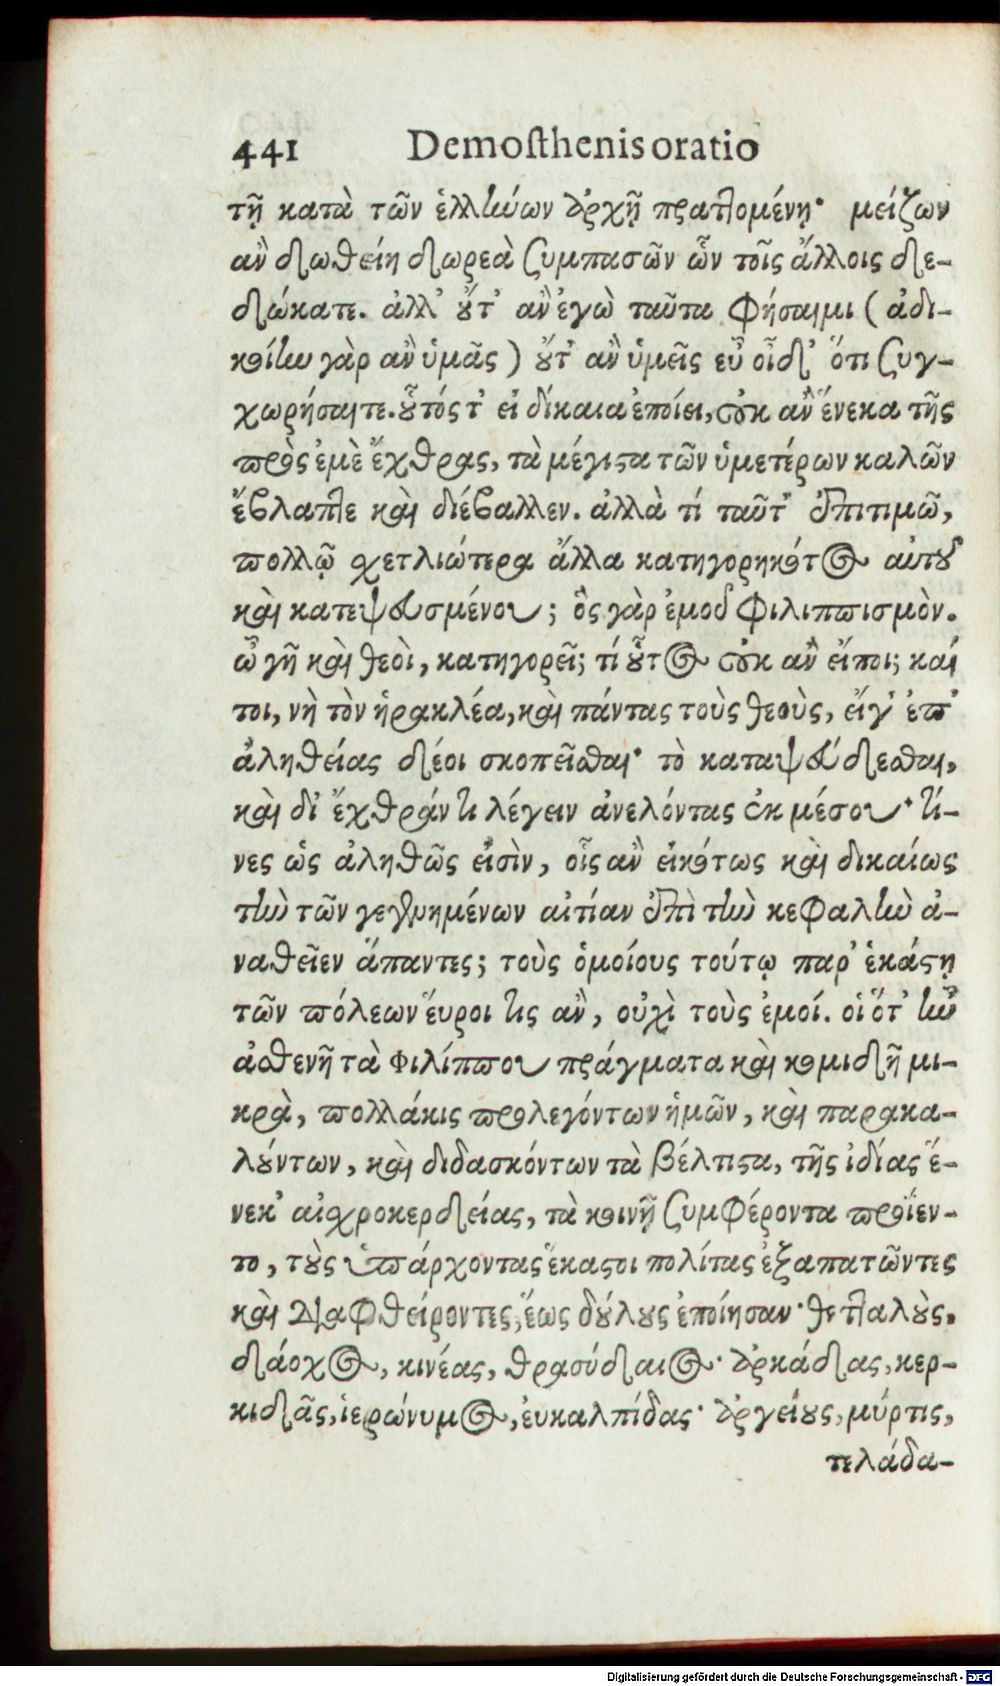 441 Demosthenis oratio
τῇ κατὰ τῶν ἑλλήνων ἀρχῇ πραττομένῃ· μείζων
ἂν δωθείη δωρεὰ συμπασῶν ὧν τοῖς ἄλλοις δε-
δώκατε. ἀλλ' οὔτ' ἂν ἐγὼ ταῦτα φήσαιμι (ἀδι-
κοίην γὰρ ἂν ὑμᾶς) οὔτ' ἂν ὑμεῖς εὖ οἶδ' ὅτι συγ-
χωρήσαιτε. οὗτός τ' εἰ δίκαια ἐποίει, οὐκ ἂν ἕνεκα τῆς
πρὸς ἐμὲ ἔχθρας, τὰ μέγιστα τῶν ὑμετέρων καλῶν
ἔβλαπτε καὶ διέβαλλεν. ἀλλὰ τί ταῦτ' ἐπιτιμῶ,
πολλῷ σχετλιώτερα ἄλλα κατηγορηκότος αὐτοῦ
καὶ κατεψευσμένου; ὃς γὰρ ἐμοῦ φιλιππισμὸν.
ὦ γῆ καὶ θεοὶ, κατηγορεῖ; τί οὗτος οὐκ ἂν εἴποι; καί
τοι, νὴ τὸν ἡρακλέα, καὶ πάντας τοὺς θεοὺς, εἴγ' ἐπ'
ἀληθείας δέοι σκοπεῖσθαι· τὸ καταψεύδεσθαι,
καὶ δι' ἔχθράν τι λέγειν ἀνελόντας ἐκ μέσου· τί-
νες ὡς ἀληθῶς εἰσὶν, οἷς ἂν εἰκότως καὶ δικαίως
τὴν τῶν γεγενημένων αἰτίαν ἐπὶ τὴν κεφαλὴν ἀ-
ναθεῖεν ἅπαντες; τοὺς ὁμοίους τούτῳ παρ' ἑκάστῃ
τῶν πόλεων εὕροι τις ἂν, οὐχὶ τοὺς ἐμοί. οἱ ὅτ' ἦν
ἀσθενῆ τὰ Φιλίππου πράγματα καὶ κομιδῇ μι-
κρὰ, πολλάκις προλεγόντων ἡμῶν, καὶ παρακα-
λούντων, καὶ διδασκόντων τὰ βέλτιστα, τῆς ἰδίας ἕ-
νεκ' αἰσχροκερδείας, τὰ κοινῇ συμφέροντα προΐεν-
το, τοὺς ὑπάρχοντας ἕκαστοι πολίτας ἐξαπατῶντες
καὶ διαφθείροντες, ἕως δούλους ἐποίησαν· θετταλοὺς,
δάοχος, κινέας, θρασύδαιος· ἀρκάδας, κερ-
κιδᾶς, ἱερώνυμος, εὐκαλπίδας· ἀργείους, μύρτις,
τελάδα-
Digitalisierung gefördert durch die Deutsche Forschungsgemeinschaft - DFG